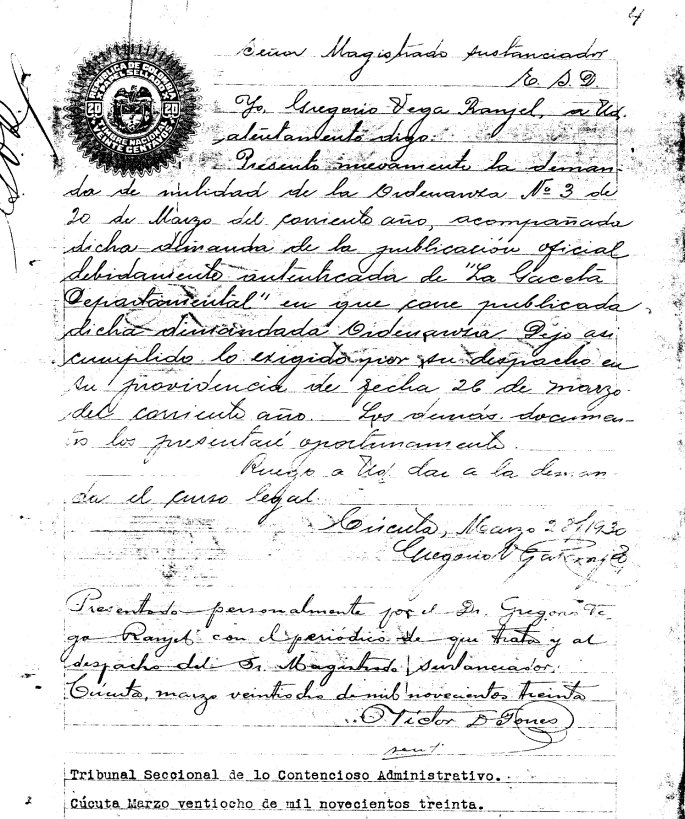 4
Señor Magistrado sustanciador
E. S. D.
REPUBLICA DE COLOMBIA
PAPEL SELLADO
20 20
VEINTE CENTAVOS
Yo, Gregorio Vega Ranjel, a Ud.
atentamente digo:
Presento nuevamente la deman-
da de nulidad de la Ordenanza Nº 3 de
20 de Marzo del corriente año, acompañada
dicha demanda de la publicación oficial
debidamente autenticada de "La Gaceta
Departamental" en que corre publicada
dicha demandada Ordenanza. Dejo asi
cumplido lo exigido por su despacho en
su providencia de fecha 26 de marzo
del corriente año. Los demás documen-
tos los presentaré oportunamente.
Ruego a Ud. dar a la deman
da el curso legal
Cúcuta, Marzo 28/1930
Gregorio V
Presentado personalmente por el Dr. Gregorio Ve-
ga Ranjel con el periódico de que trata y al
despacho del Sr. Magistrado sustanciador.
Cúcuta, marzo veintiocho de mil novecientos treinta
Victor D Torres
Tribunal Seccional de lo Contencioso Administrativo.
Cúcuta Marzo ventiocho de mil novecientos treinta.